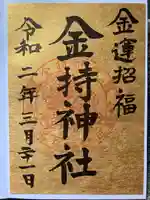 金運招福
金持神社
令和二年三月二十一日